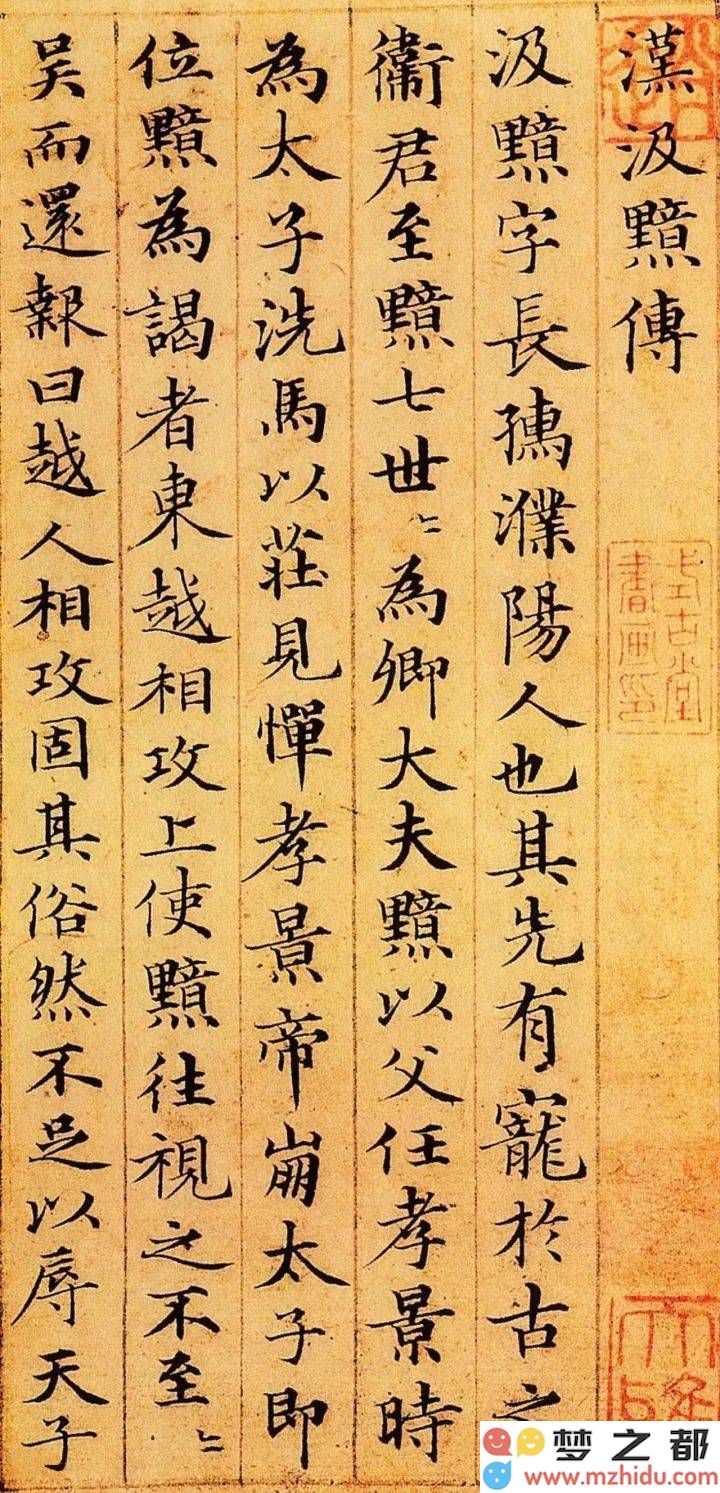 漢汲黯傳
汲黯字長孺濮陽人也其先有寵於古之
衛君至黯七世〻為卿大夫黯以父任孝景時
為太子洗馬以莊見憚孝景帝崩太子即
位黯為謁者東越相攻上使黯往視之不至〻
吴而還報曰越人相攻固其俗然不足以辱天子
書画印
梦之都
www.mzhidu.com